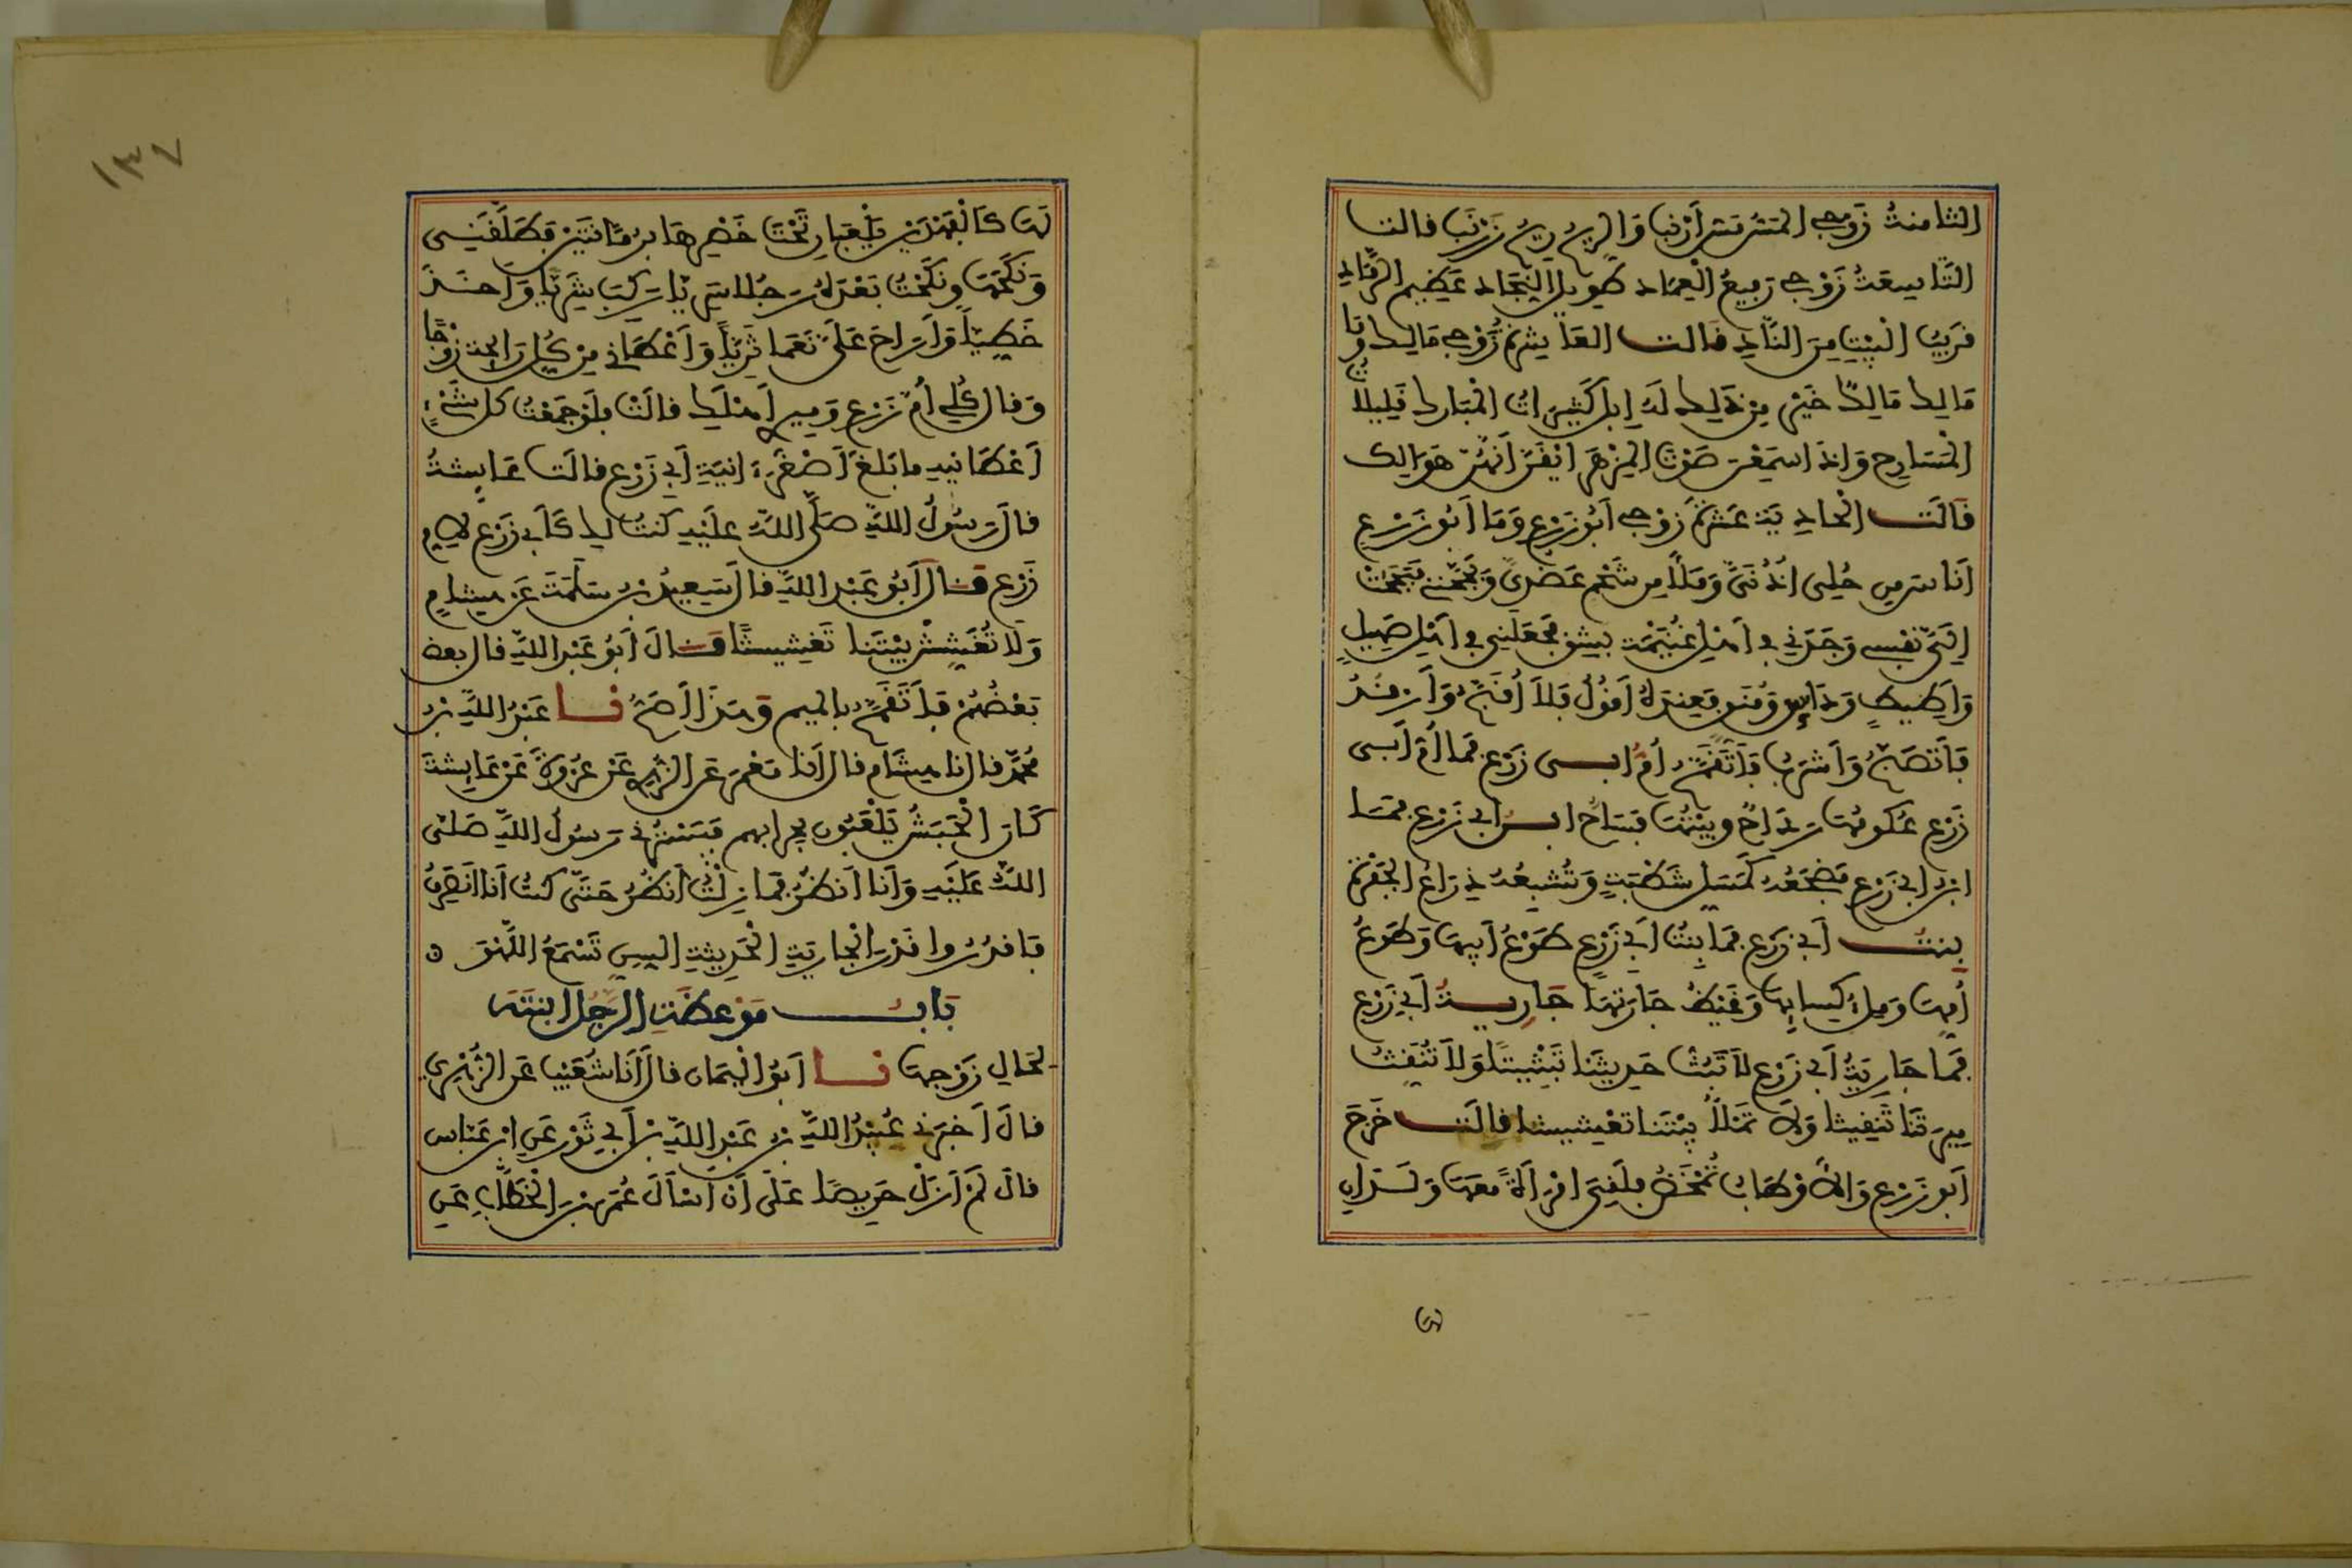 الثامنةُ زَوْجِے المَسُّ مَسُّ أَرْنَبٍ وَالرِّيحُ رِيحُ زَرْنَبٍ فالت
التَّاسِعَةُ زَوْجِے رَفِيعُ الْعِمَادِ طَوِيلُ النِّجَادِ عَظِيمُ الرَّمَادِ
قَرِيبُ الْبَيْتِ مِنَ النَّادِ قَالت العَاشِرَةُ زَوْجِے مَالِكٌ وَمَا
مَالِك مَالِكٌ خَيْرٌ مِن ذَلِكِ لَهُ إِبِلٌ كَثِيرَاتُ الْمَبَارِكِ قَلِيلاتُ
الْمَسَارِحِ وَإِذَا سَمِعْنَ صَوْتَ الْمِزْهَرِ أَيْقَنَّ أَنَّهُنَّ هَوَالِك
قَالَت الْحَادِيَةَ عَشْرَةَ زَوْجِے أَبُو زَرْعٍ وَمَا أَبُو زَرْعٍ
أَنَاسَ مِن حُلِىٍّ أُذُنَىَّ وَمَلَأَ مِن شَحْمٍ عَضُدَىَّ وَبَجَّحَنِے فَبَجَحَتْ
إِلَىَّ نَفْسِے وَجَدَنِي فِي أَهْلِ غُنَيْمَةٍ بِشِقٍّ فَجَعَلَنِي فِي أَهْلِ صَهِيلٍ
وَأَطِيطٍ وَدَائِسٍ وَمُنَقٍّ فَعِنْدَهُ أَقُولُ فَلَا أُقَبَّحُ وَأَرْقُدُ
فَأَتَصَبَّحُ وَأَشْرَبُ فَأَتَقَمَّحُ أُمُّ أبي زَرْعٍ فَمَا أُمُّ أَبِي
زَرْعٍ عُكُومُهَا رَدَاحٌ وَبَيْتُهَا فَسَاحٌ ابن أبي زَرْعٍ فَمَا
ابْنُ أبي زَرْعٍ مَضْجَعُهُ كَمَسَلِّ شَطْبَةٍ وَتُشْبِعُهُ ذِرَاعُ الجَفْرَةِ
بِنتُ أَبي زَرْعٍ فَمَا بِنتُ أَبي زَرْعٍ طَوْعُ أَبِيهَا وَطَوْعُ
أُمِّهَا وَمِلْءُ كِسَائِهَا وَغَيْظُ جَارَتِهَا جَارِيةُ أَبي زَرْعٍ
فَمَا جَارِيَةُ أَبي زَرْعٍ لَا تَبُثُّ حَدِيثَنَا تَبْثِيثًا وَلَا تُنَقِّثُ
مِيرَتَنَا تَنْقِيثًا وَلَا تَمْلَأُ بَيْتَنَا تَعْشِيشًا قَالَت خَرَجَ
أَبُو زَرْعٍ وَالأَوْطَابُ تُمْخَضُ فَلَقِيَ امْرَأَةً مَعَهَا وَلَدَانِ
لَهَا كَالْفَهْدَيْنِ يَلْعَبَانِ تَحْتَ خَصْرِهَا بِرُمَّانَتَيْنِ فَطَلَّقَنِي
وَنَكَحَهَا وَنَكَحْتُ بَعْدَهُ رَجُلاً سَرِيًّا رَكِبَ شَرِيًّا وَأَخَذَ
خَطِّيًّا وَأَرَاحَ عَلَىَّ نَعَمًا ثَرِيًّا وَأَعْطَانِي مِنْ كُلِّ رَائِحَةٍ زَوْجًا
وَقَالَ كُلِي أُمَّ زَرْعٍ وَمِيرِي أَهْلَكِ قَالَتْ فَلَوْ جَمَعْتُ كل شَىْءٍ
أَعْطَانِيهِ مَا بَلَغَ أَصْغَرَ ءَانِيَةِ أَبي زَرْعٍ قَالَت عَايشَةُ
قالَ رَسُولُ اللَّهِ صَلَّى اللَّهُ عَلَيْهِ كنتُ لَكِ كَأَبي زَرْعٍ لأمِّ
زَرْعٍ قَالَ أَبُو عَبْدِ اللَّهِ قَالَ سَعِيدُ بْنُ سَلَمَةَ عَن هِشَامٍ
وَلَا تُعَشِّشْ بَيْتَنَا تَعْشِيشًا قَالَ أَبُو عَبْدِ اللَّهِ قال بعض
بَعْضُهُمْ فَأَتَقَمَّحُ بالميم وَهَذَا أَصَحُّ نا عَبْدُ اللَّهِ بْنُ
مُحَمَّدٍ قال نا هِشَامٌ قالَ أَنَا مَعْمَرٌ عَنِ الزُّهْرِي عَنْ عُرْوَةَ عَنْ عَايشَةَ
كَانَ الْحَبَشُ يَلْعَبُونَ بِحِرَابِهِمْ فَسَتَرَنِي رَسُولُ اللَّهِ صَلَّى
اللَّهُ عَلَيْهِ وَأَنَا أَنظُرُ فَمَا زِلْتُ أَنظُرُ حَتَّى كنتُ أَنَا أَنصَرِفُ
فَاقْدُرُوا قَدْرَ الْجَارِيَةِ الْحَدِيثَةِ السِّنِّ تَسْمَعُ اللَّهْوَ ه
بَابُ مَوْعِظَةِ الرَّجُلِ ابْنَتَهُ
لِحَالِ زَوْجِهَا نا أَبُو الْيَمَانِ قالَ أَنَا شُعَيْبٌ عَنِ الزُّهْرِي
قالَ أَخْبَرَنِي عُبَيْدُ اللَّهِ بْنُ عَبْدِ اللَّهِ بْنِ أَبي ثَوْرٍ عَنِ ابْنِ عَبَّاسٍ
قالَ لَمْ أَزَلْ حَرِيصًا عَلَى أَنْ أَسْأَلَ عُمَرَ بْنَ الْخَطَّابِ عَنِ
لها
١٣٧